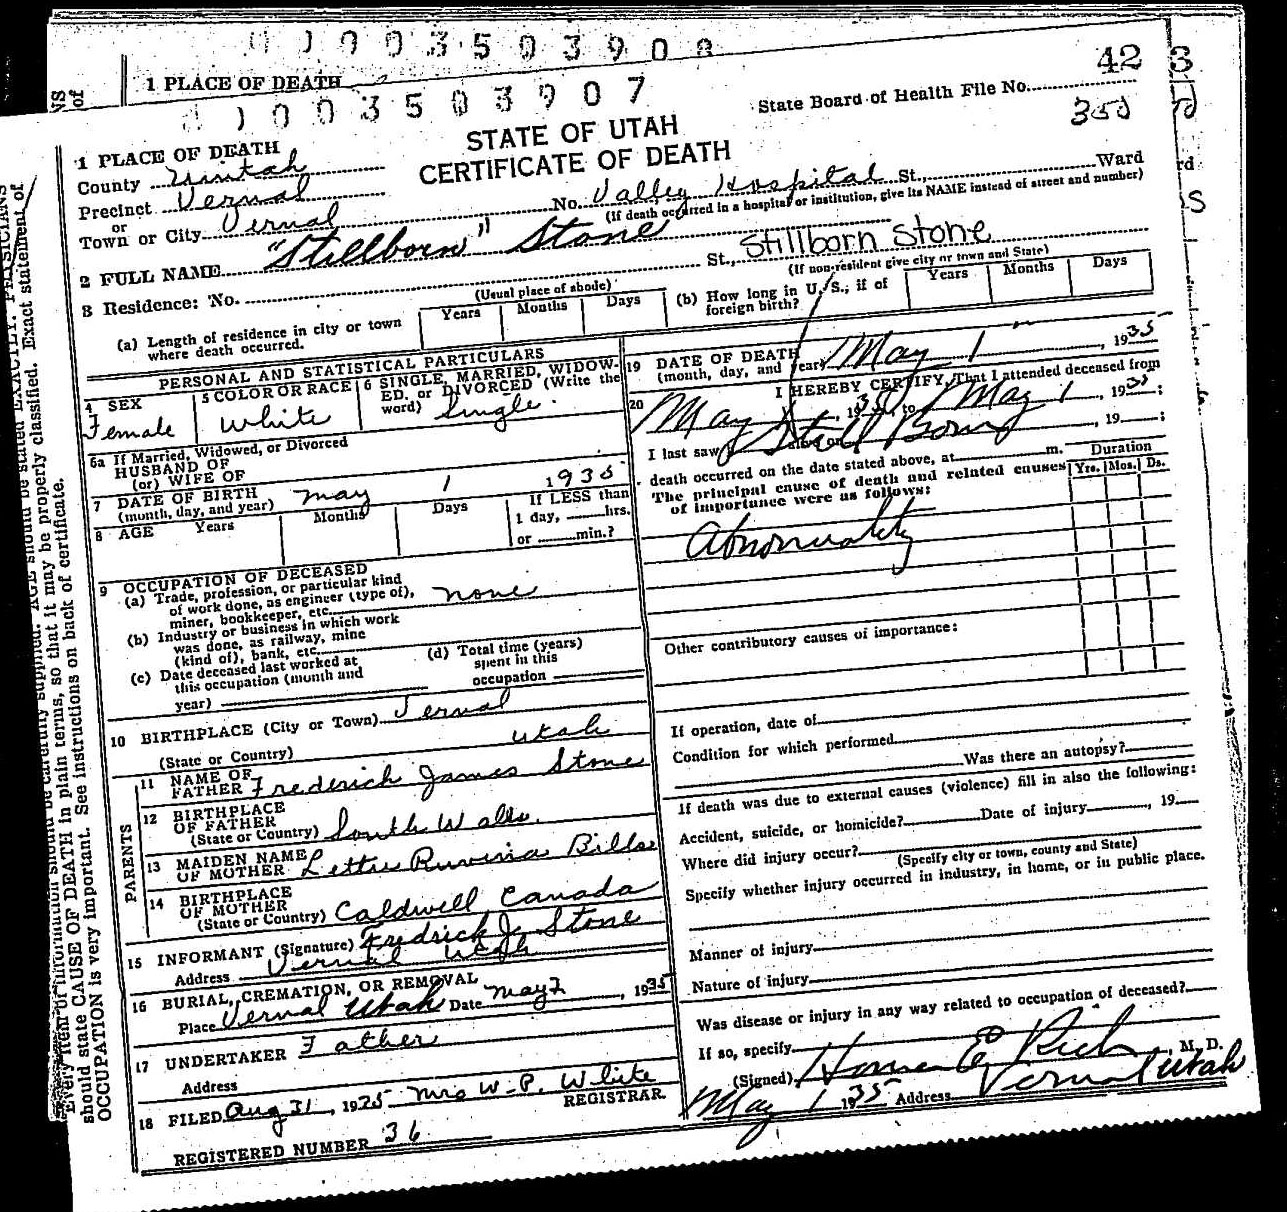 0003503908
1 PLACE OF DEATH
0003503907
42
3
State Board of Health File No.
350
STATE OF UTAH
CERTIFICATE OF DEATH
1 PLACE OF DEATH
County Uintah
Precinct Vernal
or
Town or City Vernal
No. Valley Hospital St., Ward
(If death occurred in a hospital or institution, give its NAME instead of street and number)
2 FULL NAME "Stillborn" Stone
Stillborn Stone
3 Residence: No. St.,
(Usual place of abode)
(If non-resident give city or town and State)
(a) Length of residence in city or town
where death occurred.
Years Months Days
(b) How long in U. S., if of
foreign birth?
Years Months Days
PERSONAL AND STATISTICAL PARTICULARS
4 SEX
Female
5 COLOR OR RACE
White
6 SINGLE, MARRIED, WIDOW-
ED, or DIVORCED (Write the
word) Single.
6a If Married, Widowed, or Divorced
HUSBAND OF
(or) WIFE OF
7 DATE OF BIRTH
(month, day, and year) May 1 1935
8 AGE Years Months Days
If LESS than
1 day, hrs.
or min.?
9 OCCUPATION OF DECEASED
(a) Trade, profession, or particular kind
of work done, as engineer (type of),
miner, bookkeeper, etc. none
(b) Industry or business in which work
was done, as railway, mine
(kind of), bank, etc.
(c) Date deceased last worked at
this occupation (month and
year)
(d) Total time (years)
spent in this
occupation
10 BIRTHPLACE (City or Town) Vernal
(State or Country) Utah
PARENTS
11 NAME OF
FATHER Frederick James Stone
12 BIRTHPLACE
OF FATHER
(State or Country) South Wales.
13 MAIDEN NAME
OF MOTHER Lettie Ruvina Bills
14 BIRTHPLACE
OF MOTHER
(State or Country) Caldwell Canada
15 INFORMANT (Signature) Fredrick J. Stone
Address Vernal Utah
16 BURIAL, CREMATION, OR REMOVAL
Place Vernal Utah Date May 2, 1935
17 UNDERTAKER Father
Address
18 FILED Aug 31, 1935 Mrs W. P. White
REGISTRAR.
REGISTERED NUMBER 36
19 DATE OF DEATH
(month, day, and year) May 1, 1935
20 I HEREBY CERTIFY, That I attended deceased from
May 1, 1935, to May 1, 1935;
I last saw Still Born, 19;
death occurred on the date stated above, at m.
The principal cause of death and related causes
of importance were as follows:
Duration
Yrs. Mos. Ds.
Abnormality
Other contributory causes of importance:
If operation, date of
Condition for which performed
Was there an autopsy?
If death was due to external causes (violence) fill in also the following:
Accident, suicide, or homicide? Date of injury, 19
Where did injury occur?
(Specify city or town, county and State)
Specify whether injury occurred in industry, in home, or in public place.
Manner of injury
Nature of injury
Was disease or injury in any way related to occupation of deceased?
If so, specify
(Signed) Homer E Rich, M. D.
May 1 1935 Address Vernal Utah
should state CAUSE OF DEATH in plain terms, so that it may be properly classified. Exact statement of
OCCUPATION is very important. See instructions on back of certificate.